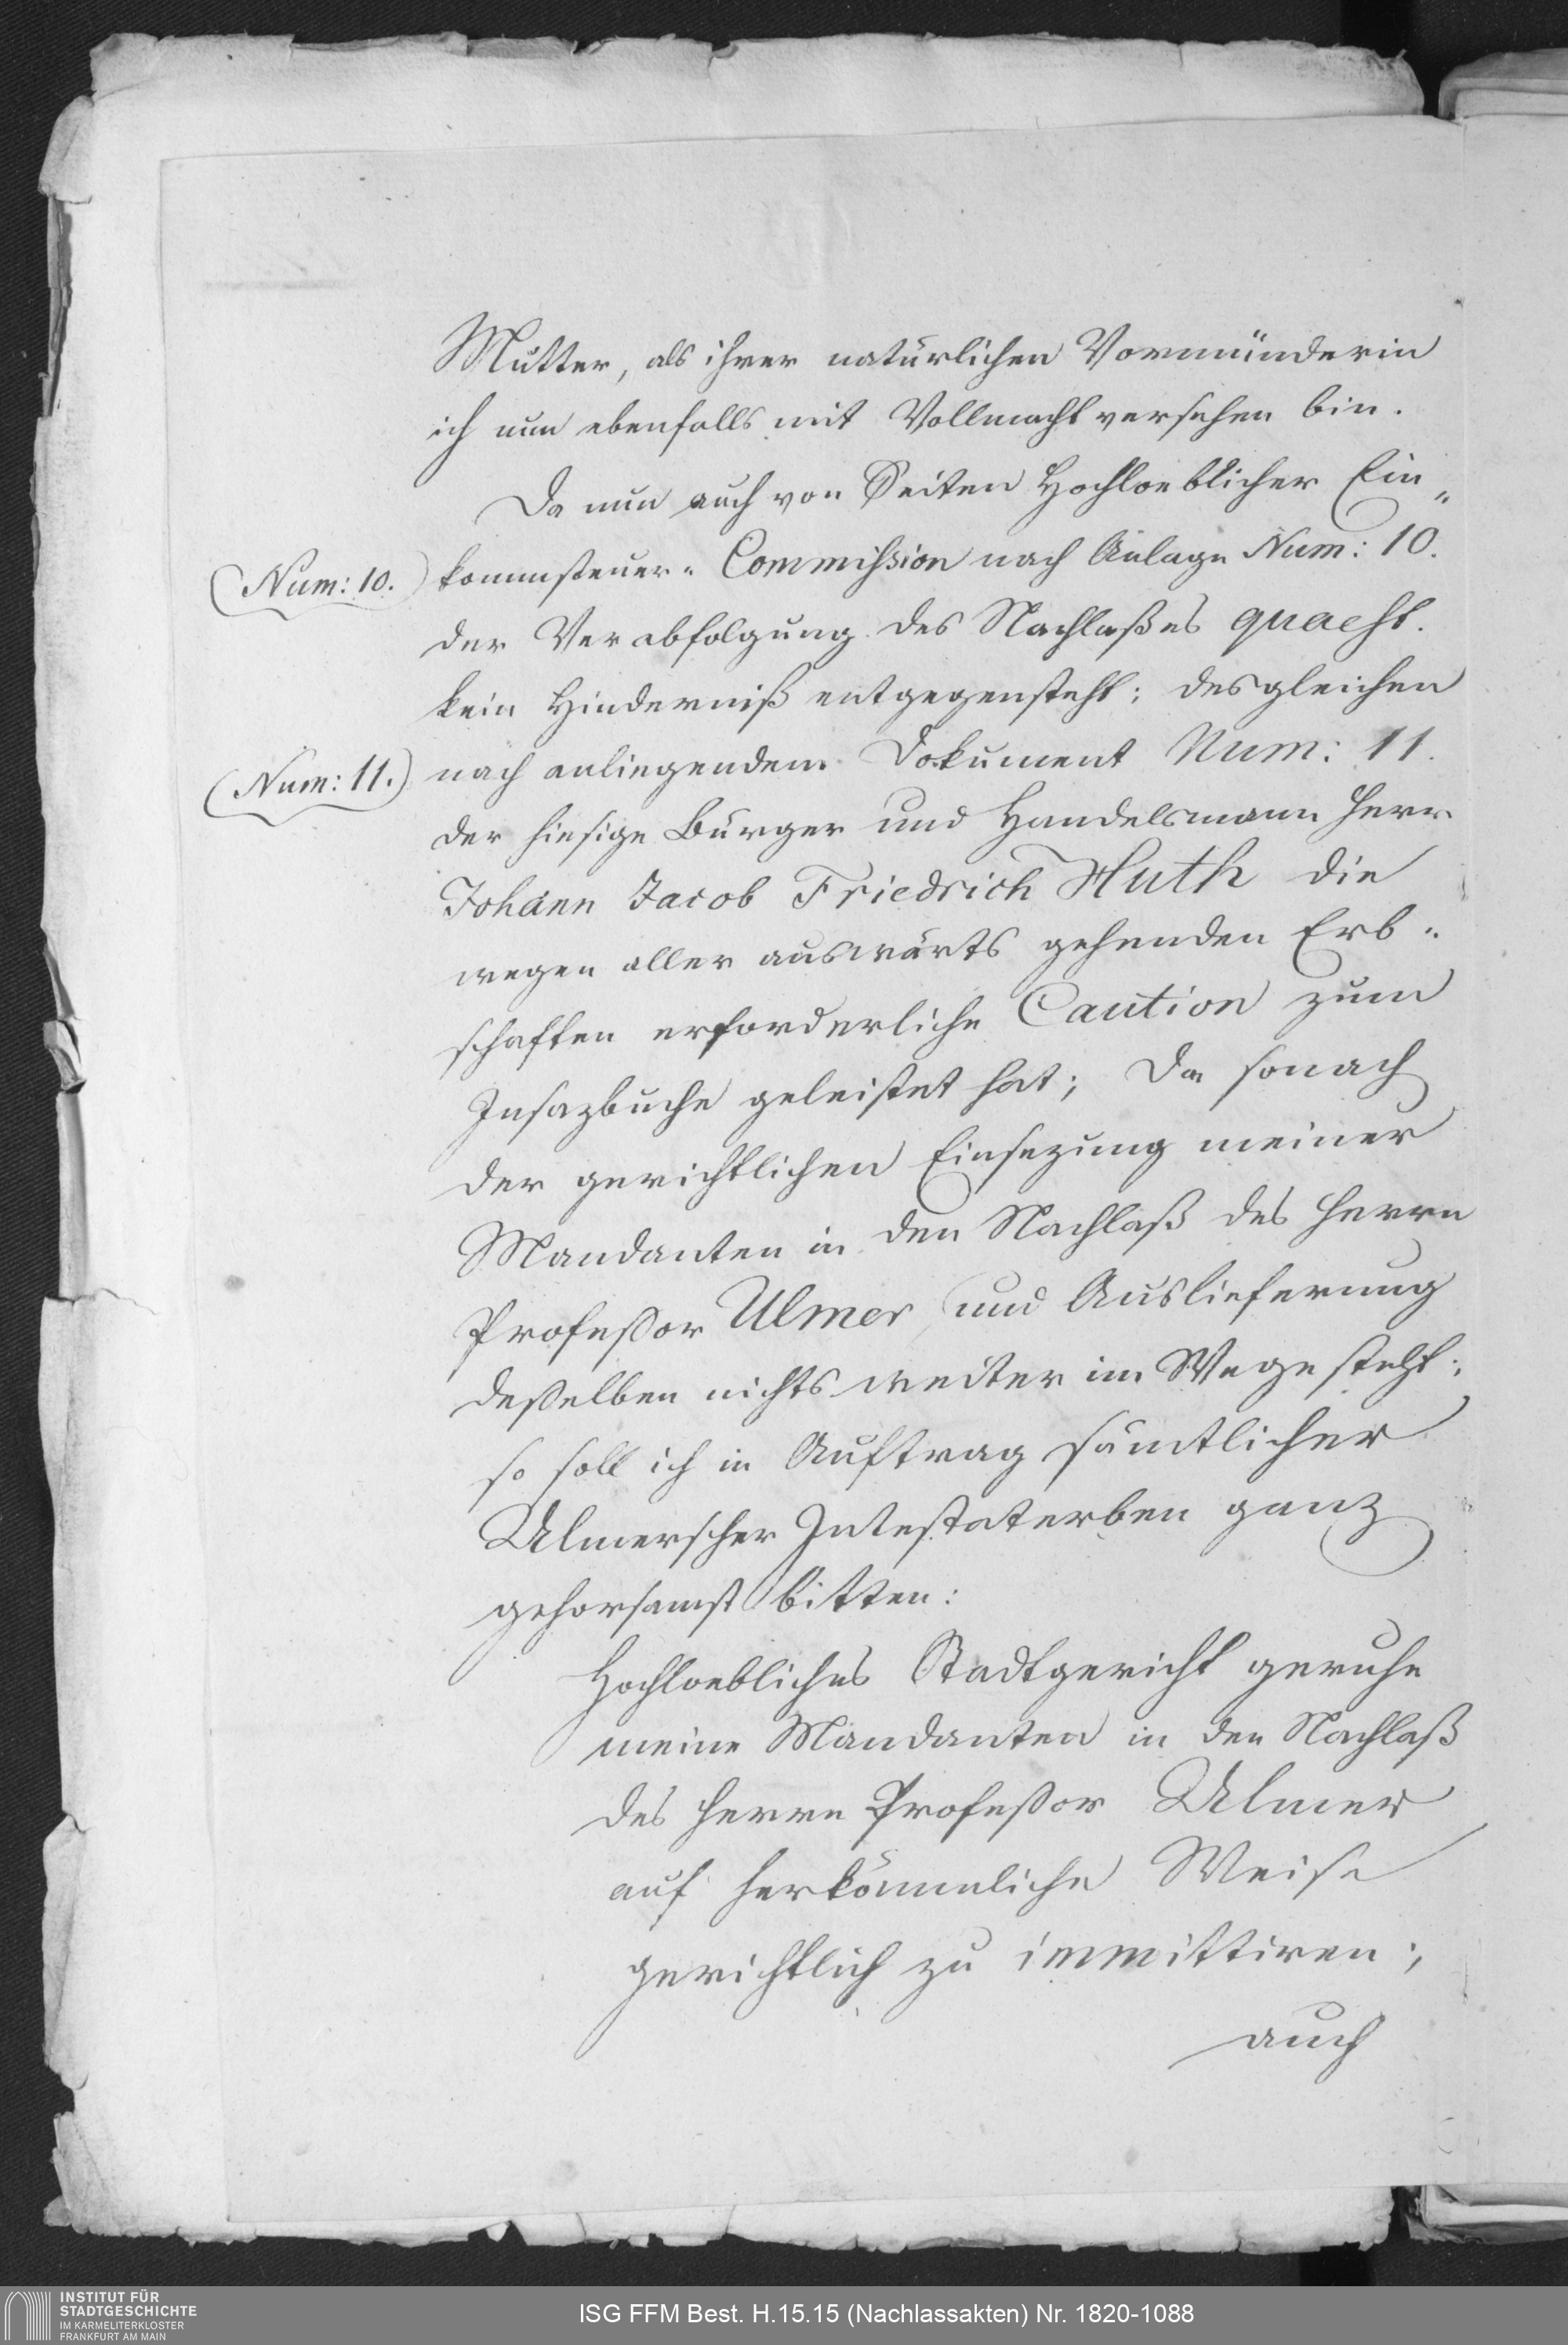 Mutter, als ihrer natürlichen Vormünderin
ich nun ebenfalls mit Vollmacht versehen bin.
Da nun auch von Seiten Hochloeblicher Ein„
(Num: 10.) kommsteuer-Commißion nach Anlage Num: 10.
der Verabfolgung des Nachlaßes quaest.
kein Hinderniß entgegensteht; desgleichen
(Num: 11.) nach anliegendem Dokument Num: 11.
der hiesige Bürger und Handelsmann Herr
Johann Jacob Friedrich Huth die
wegen aller auswärts gehenden Erb-
schaften erforderliche Caution zum
Insazbuche geleistet hat; Da sonach
der gerichtlichen Einsezung meiner
Mandanten in den Nachlaß des Herrn
Profeßor Ulmer und Auslieferung
deßelben nichts weiter im Wege steht;
so soll ich in Auftrag sämtlicher
Ulmerscher Intestaterben ganz
gehorsamst bitten:
Hochloebliches Stadtgericht geruhe
meine Mandanten in den Nachlaß
des Herrn Profeßor Ulmer
auf herkömmliche Weise
gerichtlich zu immittiren;
auch
INSTITUT FÜR
STADTGESCHICHTE
IM KARMELITERKLOSTER
FRANKFURT AM MAIN
ISG FFM Best. H.15.15 (Nachlassakten) Nr. 1820-1088